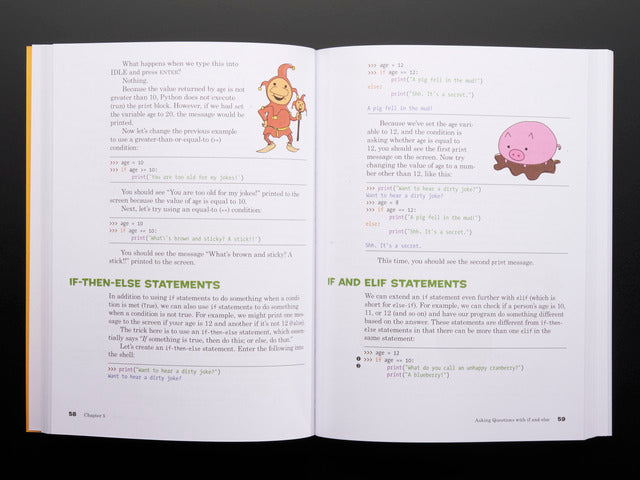 What happens when we type this into
IDLE and press ENTER?
Nothing.
Because the value returned by age is not
greater than 10, Python does not execute
(run) the print block. However, if we had set
the variable age to 20, the message would be
printed.
Now let's change the previous example
to use a greater-than-or-equal-to (>=)
condition:
>>> age = 10
>>> if age >= 10:
print('You are too old for my jokes!')
You should see "You are too old for my jokes!" printed to the
screen because the value of age is equal to 10.
Next, let's try using an equal-to (==) condition:
>>> age = 10
>>> if age == 10:
print('What\'s brown and sticky? A stick!!')
You should see the message "What's brown and sticky? A
stick!!" printed to the screen.
IF-THEN-ELSE STATEMENTS
In addition to using if statements to do something when a condi-
tion is met (true), we can also use if statements to do something
when a condition is not true. For example, we might print one mes-
sage to the screen if your age is 12 and another if it's not 12 (false).
The trick here is to use an if-then-else statement, which essen-
tially says "If something is true, then do this; or else, do that."
Let's create an if-then-else statement. Enter the following into
the shell:
>>> print("Want to hear a dirty joke?")
Want to hear a dirty joke?
58 Chapter 5
>>> age = 12
>>> if age == 12:
print("A pig fell in the mud!")
else:
print("Shh. It's a secret.")
A pig fell in the mud!
Because we've set the age vari-
able to 12, and the condition is
asking whether age is equal to
12, you should see the first print
message on the screen. Now try
changing the value of age to a num-
ber other than 12, like this:
>>> print("Want to hear a dirty joke?")
Want to hear a dirty joke?
>>> age = 8
>>> if age == 12:
print("A pig fell in the mud!")
else:
print("Shh. It's a secret.")
Shh. It's a secret.
This time, you should see the second print message.
IF AND ELIF STATEMENTS
We can extend an if statement even further with elif (which is
short for else-if). For example, we can check if a person's age is 10,
11, or 12 (and so on) and have our program do something different
based on the answer. These statements are different from if-then-
else statements in that there can be more than one elif in the
same statement:
>>> age = 12
❶ >>> if age == 10:
❷ print("What do you call an unhappy cranberry?")
print("A blueberry!")
Asking Questions with if and else 59